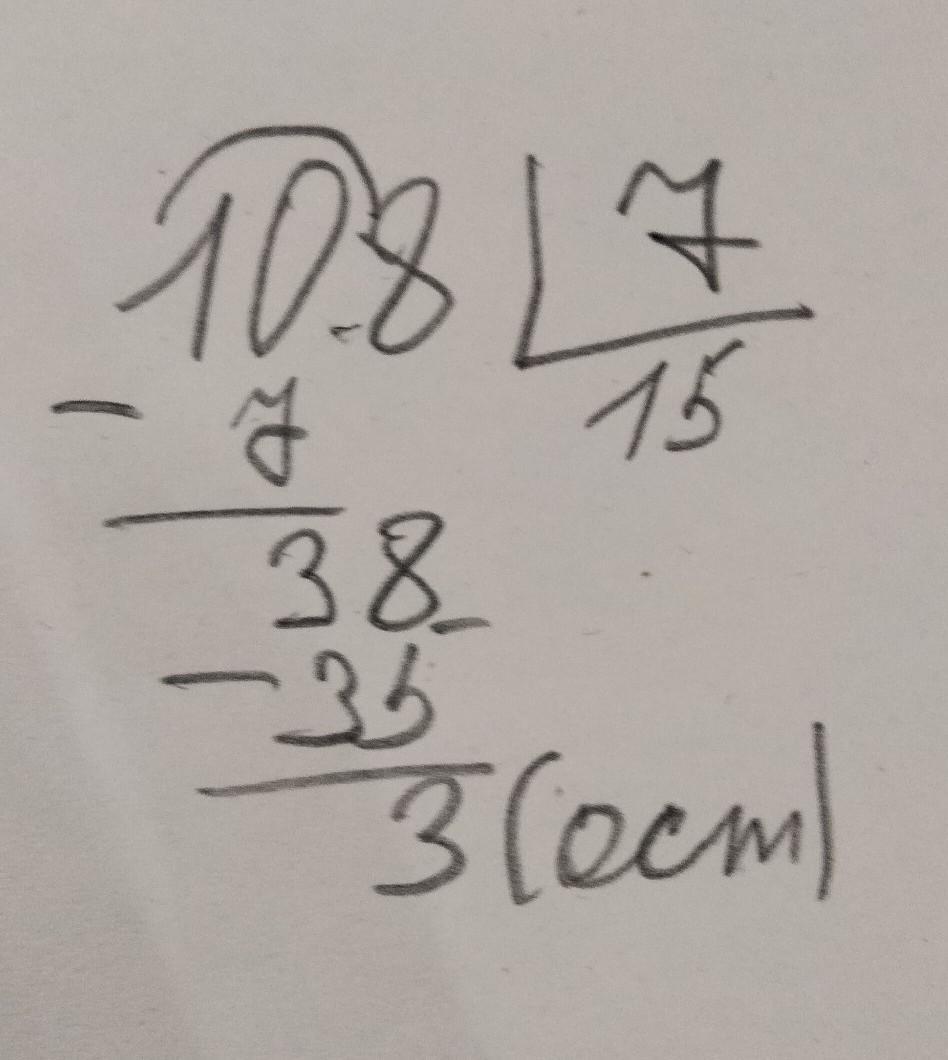 108 7
- 7 15
38
- 35
3 (ост)